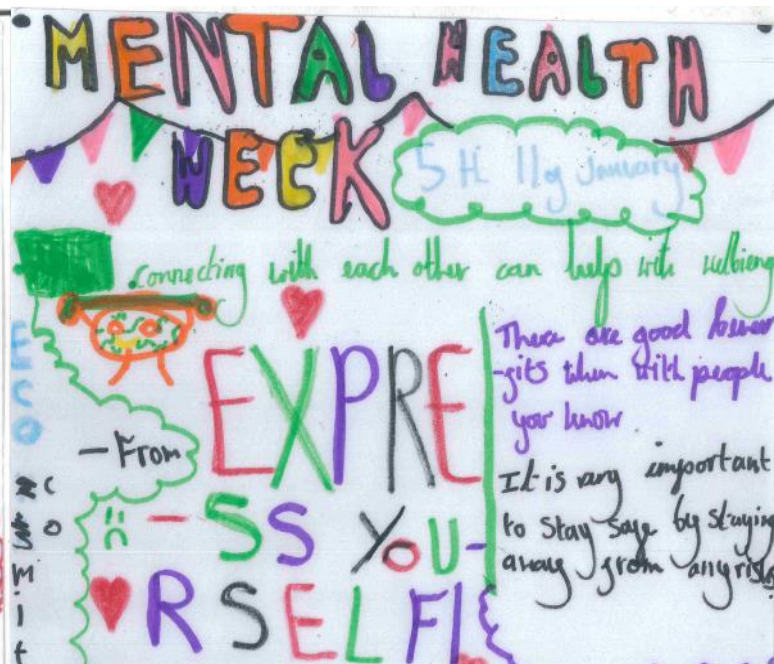 MENTAL HEALTH
WEEK
5H 11 of January
Connecting with each other can help with wellbieng
EXPRE
-SS YOU-
RSELF!
There are good
-fits when with people
you know
It is very important
to stay safe by staying
away from any risks
- From
ECO
COMMIT